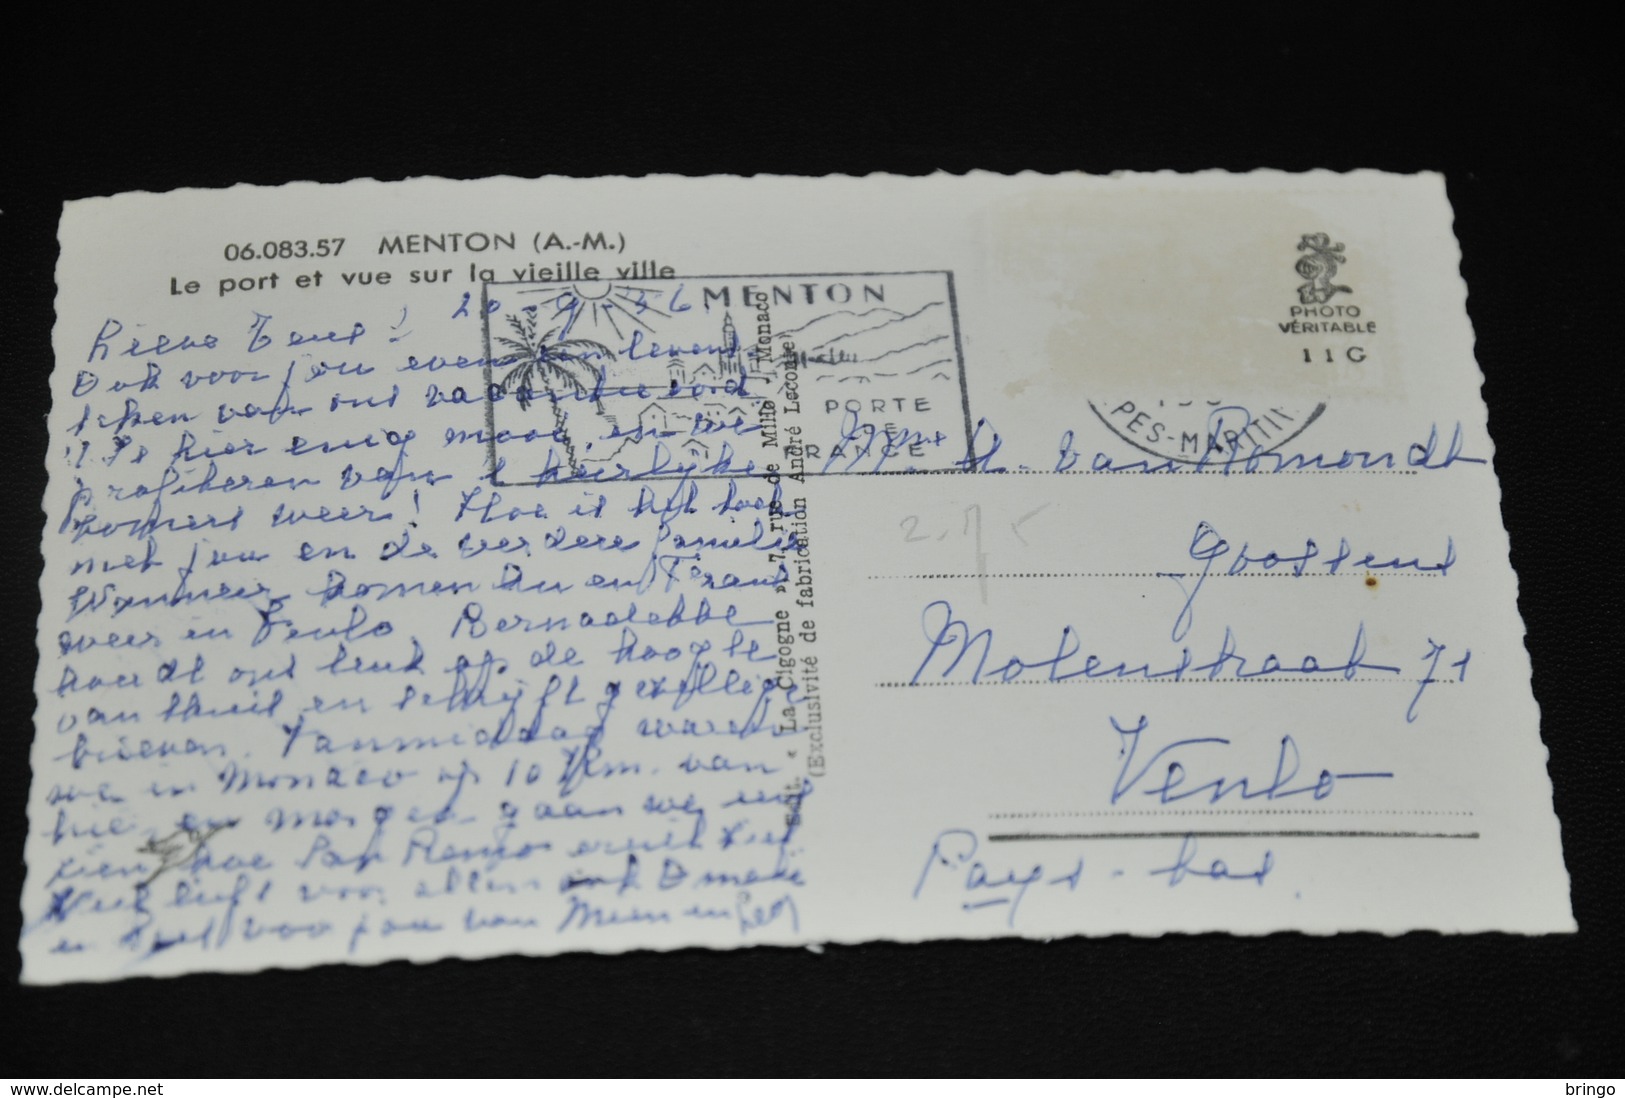 06.083.57 MENTON (A.-M.)
Le port et vue sur la vieille ville
20 9 - 56
Lieve Teus!
Ook voor jou even een levens
teken van ons vacantie oord
't Is hier enig mooi, en we
profiteren van 't heerlijke
zomers weer! Hoe is het toch
met jou en de verdere familie
Wanneer komen en Frans
weer in Venlo. Bernadette
houdt ons leuk op de hoogte
van thuis en schrijft gezellige
brieven. Vanmiddag waren
we in Monaco op 10 Km. van
hier en morgen gaan we eens
zien hoe San Remo eruit ziet
Veel liefs voor allen ook Oma
en veel voor jou van Mien en
MENTON
PORTE
FRANCE
Edit. « La Cigogne » - 7, rue de Millo, Monaco
(Exclusivité de fabrication André Leconte)
PHOTO
VÉRITABLE
11G
PES-MARITI
2.75
Mme H. van Romondt
Goossens
Molenstraat 71
Venlo
Pays-bas.
delcampe.net
bringo